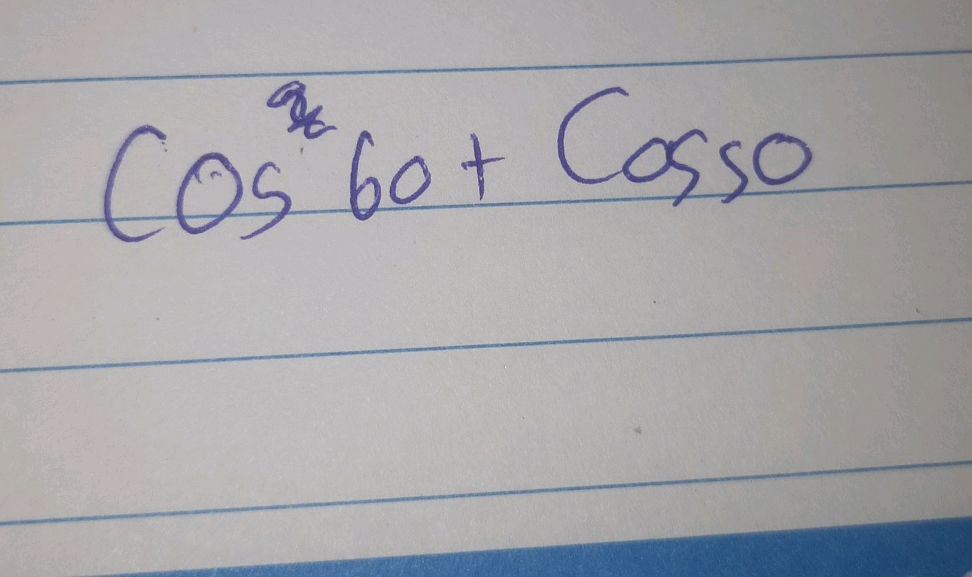 Cos² 60 + Cos50